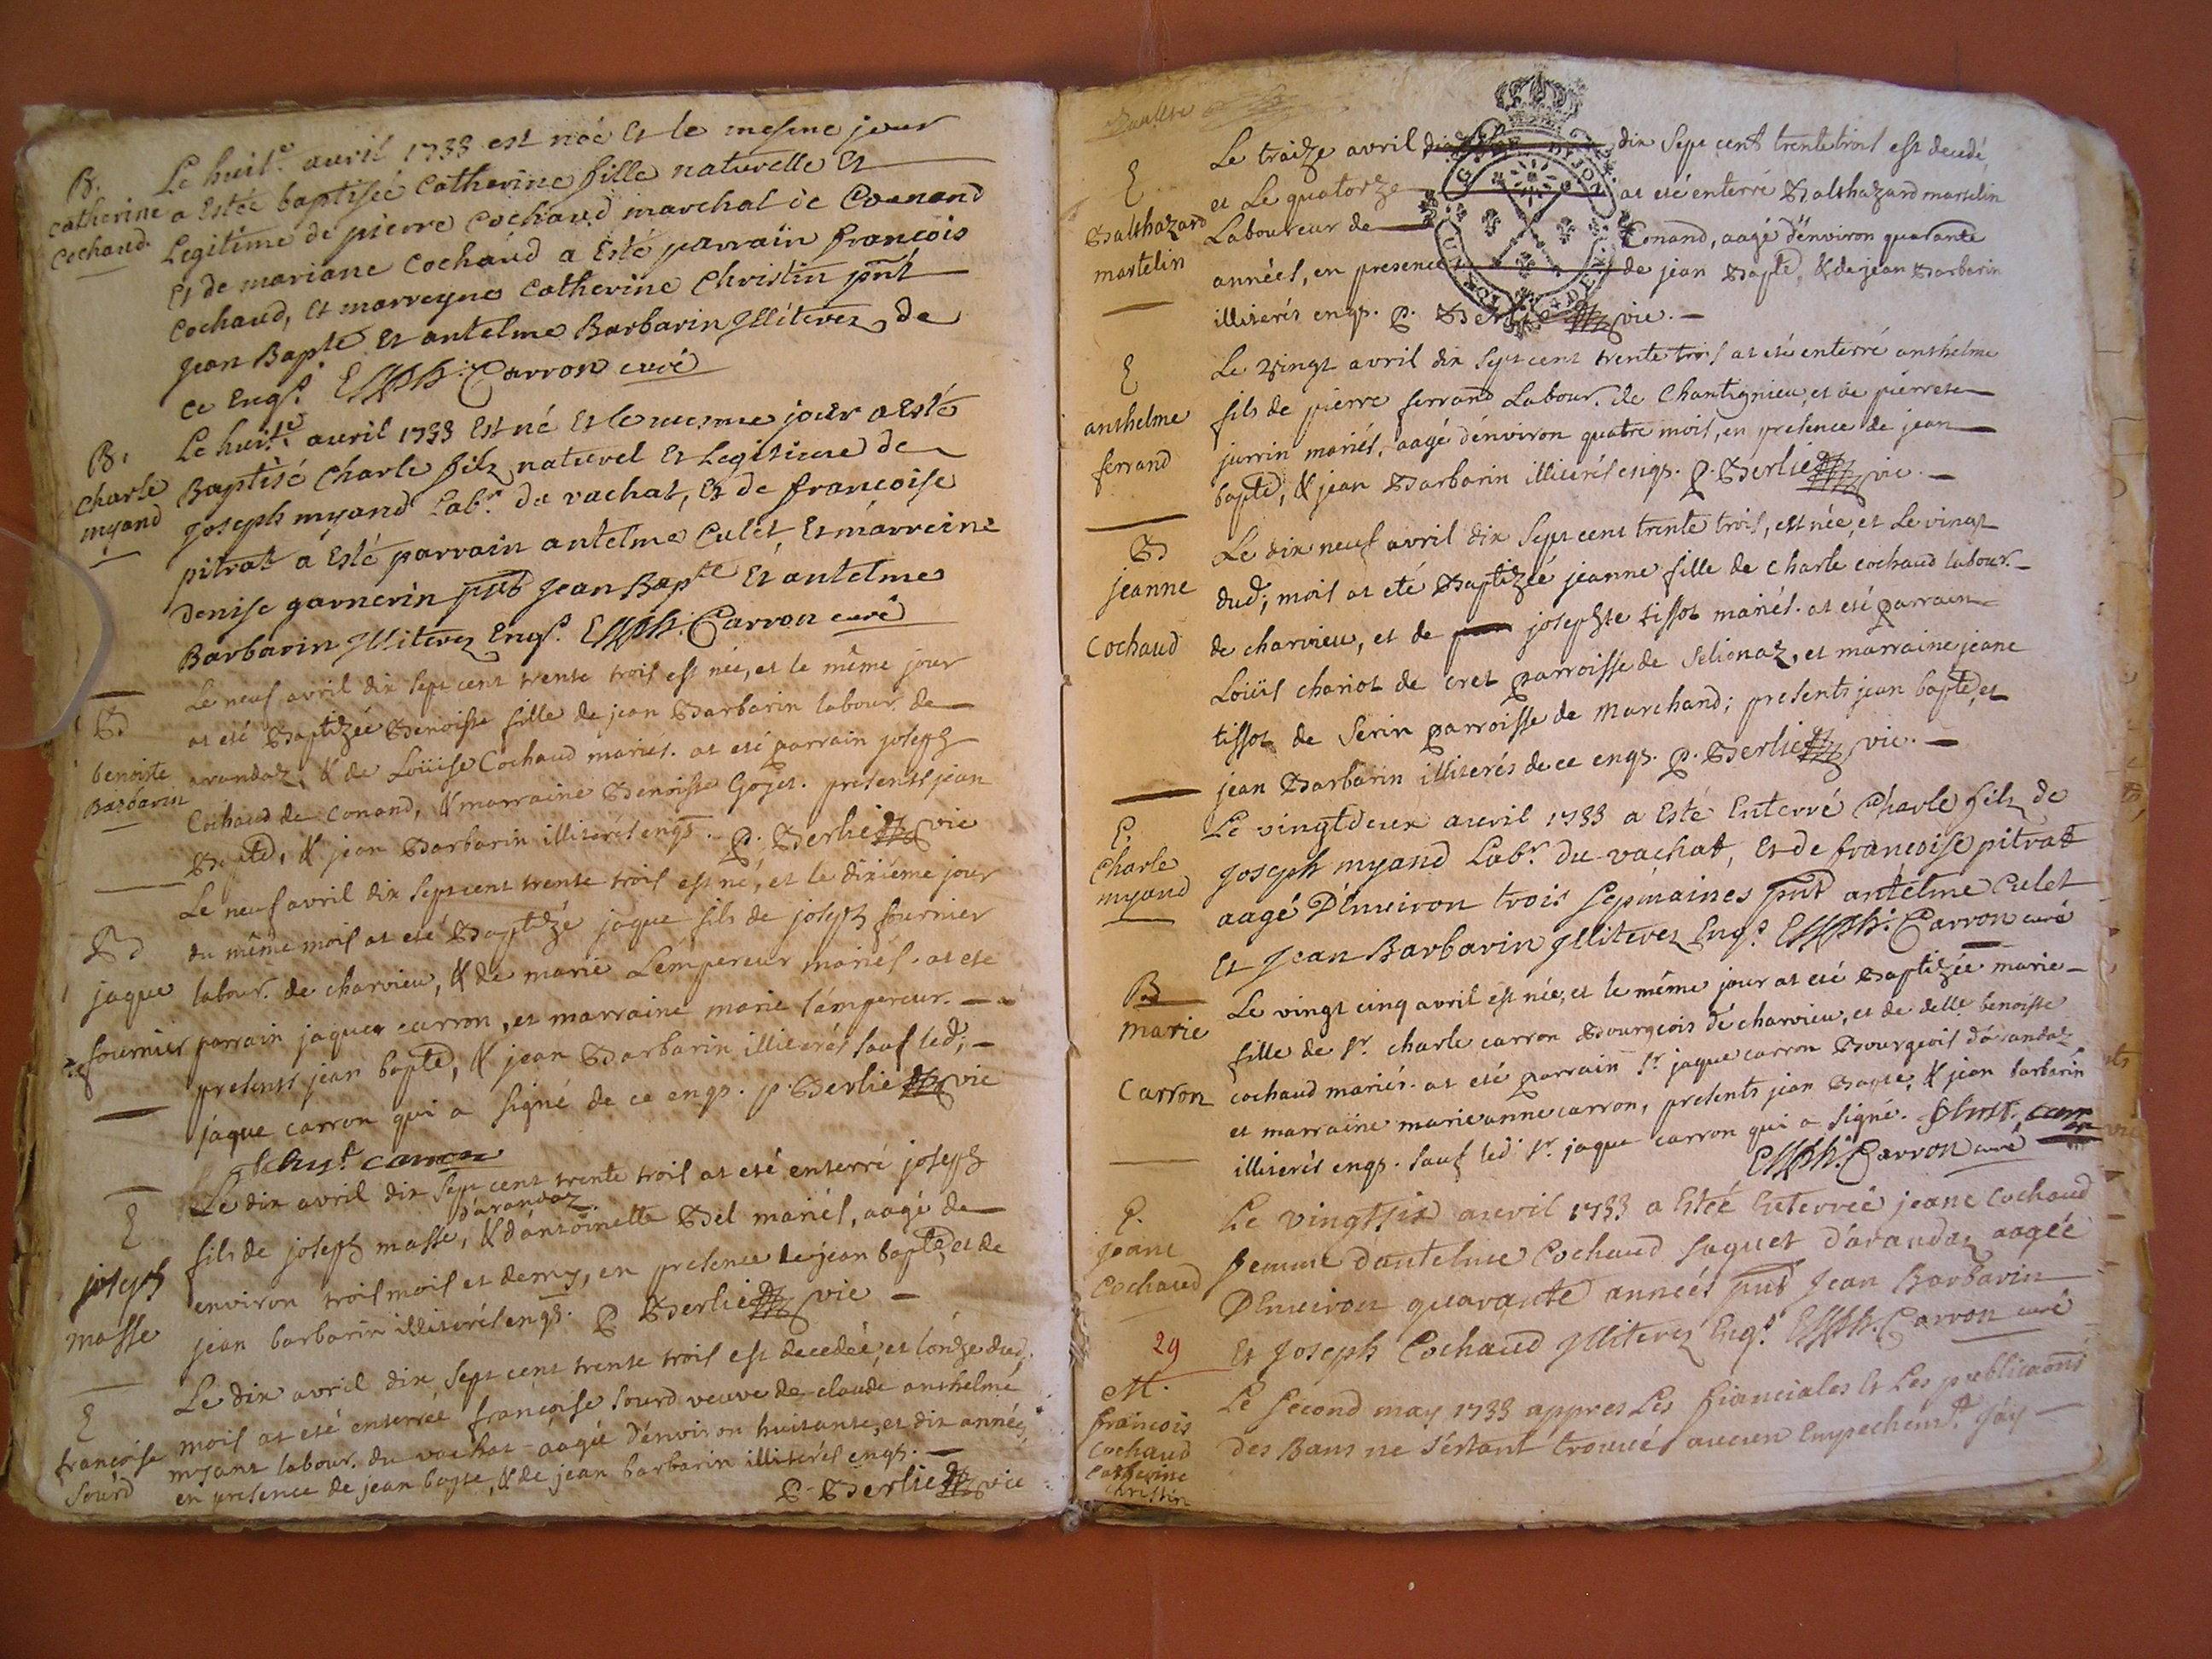 B.
catherine
cochaud
Le huit.e auril 1733 est née Et le mesme jour
a Estée baptisée Catherine fille naturelle Et
Legitime de pierre Cochaud marchal de Conand
Et de mariane Cochaud a Esté parrain francois
Cochaud, Et marreyne Catherine Christin pnt
Jean Bapte Et antelme Barbarin Illiterez de
ce Enqs. Carron curé
B.
Charle
myand
Le huit.e auril 1733 Est né Et le mesme jour a Esté
Baptisé Charle filz naturel Et Legitime de
Joseph myand Labr. du vachat, Et de francoise
pitrat a Esté parrain antelme Culet Et marreine
Denise garnerin pnts Jean Bapte Et antelme
Barbarin Illiterez Enqs. Carron curé
B
benoiste
Barbarin
Le neuf avril dix sept cent trente trois est née, et le même jour
at eté Baptizée Benoiste fille de jean Barbarin labour. de
arandaz, & de Loüise Cochaud mariés. at eté parrain joseph
Cochaud de Conand, & marraine Benoiste Gojet. presents jean
Bapte, & jean Barbarin illiterés enqs. P. Berlie vic
B
jaque
fournier
Le neuf avril dix sept cent trente trois est né, et le dixiéme jour
du même mois at eté Baptizé jaque fils de joseph fournier
labour. de charvieu, & de marie Lempereur mariés. at eté
parrain jaque carron, et marraine marie lémpereur.
presents jean bapte, & jean Barbarin illiterés sauf led;
jaque carron qui a signé de ce enqs. p. Berlie vic
carron
E
joseph
masse
Le dix avril dix sept cent trente trois at eté enterré joseph
d'arandaz
fils de joseph masse, & d'antoinette Bel mariés, aagé de
environ trois mois et demy, en presence de jean bapte, et de
jean barbarin illiterés enqs. P Berlie vic
E
francoise
Sourd
Le dix avril dix sept cent trente trois est decedée, et l'ónze dud.
mois at eté enterrée francoise Sourd veuve de claude anthelme
myant labour. du vachat aagée d'énviron huitante, et dix années,
en presence de jean bapte, & de jean barbarin illiterés enqs.
P. Berlie vic
E
Balthazard
martelin
Le traize avril dix sept cent trente trois est decedé
et Le quatorze at eté enterré Balthazard martelin
Laboureur de Conand, aagé d'énviron quarante
années, en presence de jean Bapte, & de jean Barbarin
illiterés enqs. P. Berlie vic.
E
anthelme
ferrand
Le vingt avril dix sept cent trente trois at eté enterré anthelme
fils de pierre ferrand Labour. de Chantignieu, et de pierrete
jurrin mariés, aagé d'énviron quatre mois, en presence de jean
bapte, & jean Barbarin illiterés enqs. P. Berlie vic.
B
jeanne
Cochaud
Le dix neuf avril dix sept cent trente trois, est née, et Le vingt
dud; mois at eté Baptizée jeanne fille de charle cochaud labour.
de charvieu, et de josephte tissot mariés. at eté parrain
Loüis chariot de cret parroisse de Selionaz, et marraine jeane
tissot de Serin parroisse de Marchand; presents jean bapte, et
jean Barbarin illiterés de ce enqs. P. Berlie vic.
E.
Charle
myand
Le vingtdeux auril 1733 a Esté Enterré Charle filz de
Joseph myand Labr. du vachat, Et de francoise pitrat
aagé D'énuiron trois sepmaines pnt antelme Culet
Et Jean Barbarin Illiterez Enqs. Carron curé
B
Marie
Carron
Le vingt cinq avril est née, et le même jour at eté Baptizée marie
fille de sr. charle carron Bourgeois de charvieu, et de delle benoiste
cochaud mariés. at eté parrain Sr. jaque carron Bourgeois d'arandaz
et marraine marie anne carron, presents jean Bapte, & jean barbarin
illiterés enqs. sauf led. Sr. jaque carron qui a signé. carron
Carron curé
E.
Jeane
Cochaud
Le vingtsix auril 1733 a Estée Enterrée jeane Cochaud
femme d'antelme Cochaud Saguet d'arandaz aagée
D'Enuiron quarante années pnt Jean Barbarin
Et Joseph Cochaud Illiterez Enqs. Carron curé
29
M.
francois
Cochaud
Catherine
Christin
Le second may 1733 appres Les fianciales Et Les publicaons
des Bans ne s'éstant trouué aucun Empechemt. j'áy